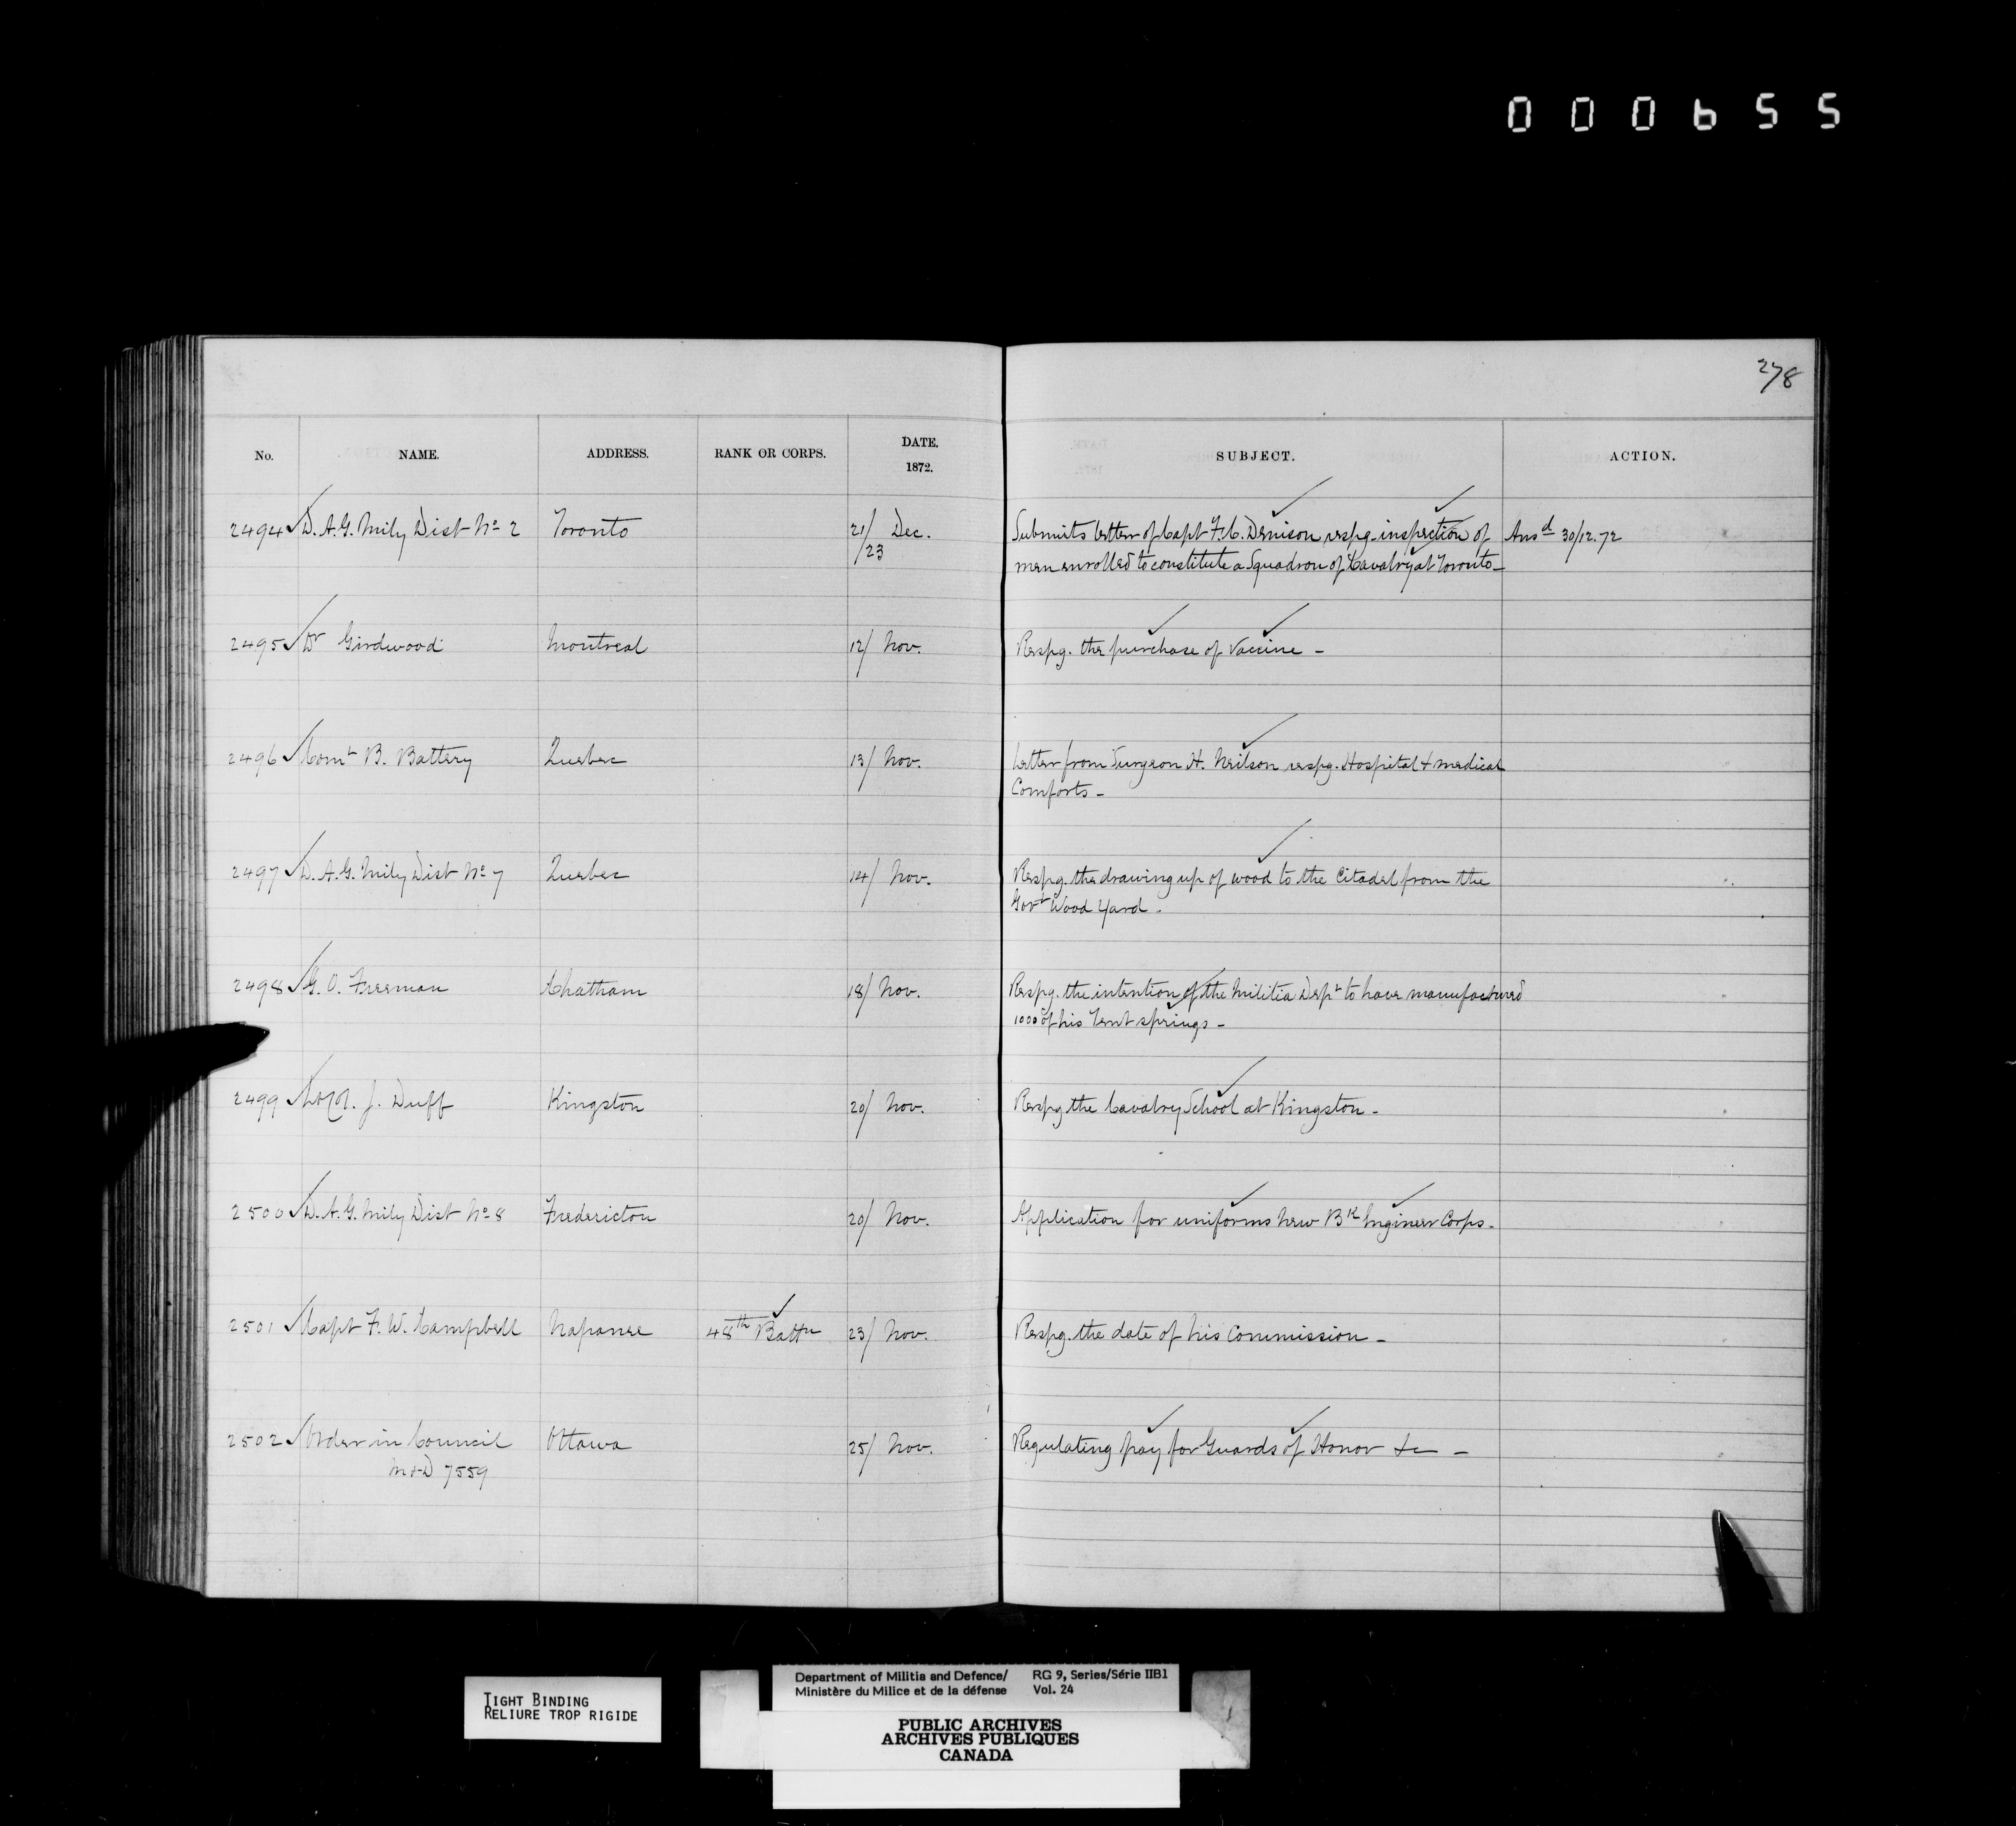 000655
278
No. NAME. ADDRESS. RANK OR CORPS. DATE. 1872. SUBJECT. ACTION.
2494 D.A.G. Mily Dist No 2 Toronto 21/23 Dec. Submits letter of Capt F.C. Denison respg. inspection of Ansd 30/12.72
men enrolled to constitute a Squadron of Cavalry at Toronto-
2495 Dr Girdwood Montreal 12/ Nov. Respg. the purchase of Vaccine -
2496 Comt B. Battery Quebec 13/ Nov. Letter from Surgeon H. Neilson respg. Hospital & medical
Comforts -
2497 D.A.G. Mily Dist No 7 Quebec 14/ Nov. Respg. the drawing up of wood to the Citadel from the
Govt Wood Yard.
2498 G.O. Freeman Chatham 18/ Nov. Respg. the intention of the Militia Dept to have manufactured
1000 of his Tent springs -
2499 J. Duff Kingston 20/ Nov. Respg the Cavalry School at Kingston -
2500 D.A.G. Mily Dist No 8 Fredericton 20/ Nov. Application for uniforms New Bk Engineer Corps.
2501 Capt F.W. Campbell Napanee 48th Battn 23/ Nov. Respg. the date of his Commission -
2502 Order in Council Ottawa 25/ Nov. Regulating pay for Guards of Honor &c -
M & D 7559
TIGHT BINDING
RELIURE TROP RIGIDE
Department of Militia and Defence/ RG 9, Series/Série IIB1
Ministère du Milice et de la défense Vol. 24
PUBLIC ARCHIVES
ARCHIVES PUBLIQUES
CANADA